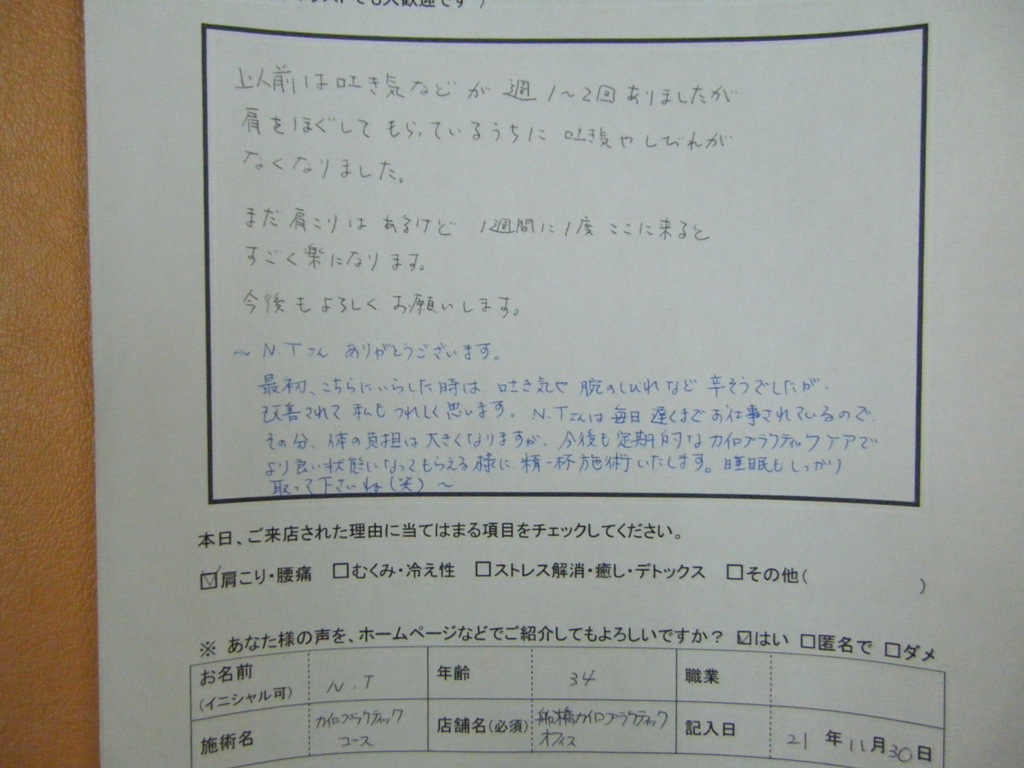 でも大歓迎です )
以前は吐き気などが 週1〜2回ありましたが
肩をほぐして もらっているうちに 吐き気や しびれが
なくなりました。
まだ 肩こりは あるけど 1週間に1度 ここに来ると
すごく楽になります。
今後もよろしく お願いします。
〜 N.Tさん ありがとうございます。
最初、こちらにいらした時は 吐き気や 腕のしびれなど 辛そうでしたが、
改善されて 私もうれしく思います。 N.Tさんは毎日遅くまでお仕事されているので、
その分、体の負担は大きくなりますが、今後も定期的なカイロプラクティックケアで
より良い状態になってもらえる様に、精一杯施術いたします。睡眠もしっかり
取って下さいね(笑) 〜
本日、ご来店された理由に当てはまる項目をチェックしてください。
☑肩こり・腰痛 □むくみ・冷え性 □ストレス解消・癒し・デトックス □その他( )
※ あなた様の声を、ホームページなどでご紹介してもよろしいですか? ☑はい □匿名で □ダメ
お名前 (イニシャル可) N.T 年齢 34 職業
施術名 カイロプラクティック コース 店舗名(必須) 船橋カイロプラクティック オフィス 記入日 21 年 11 月 30 日